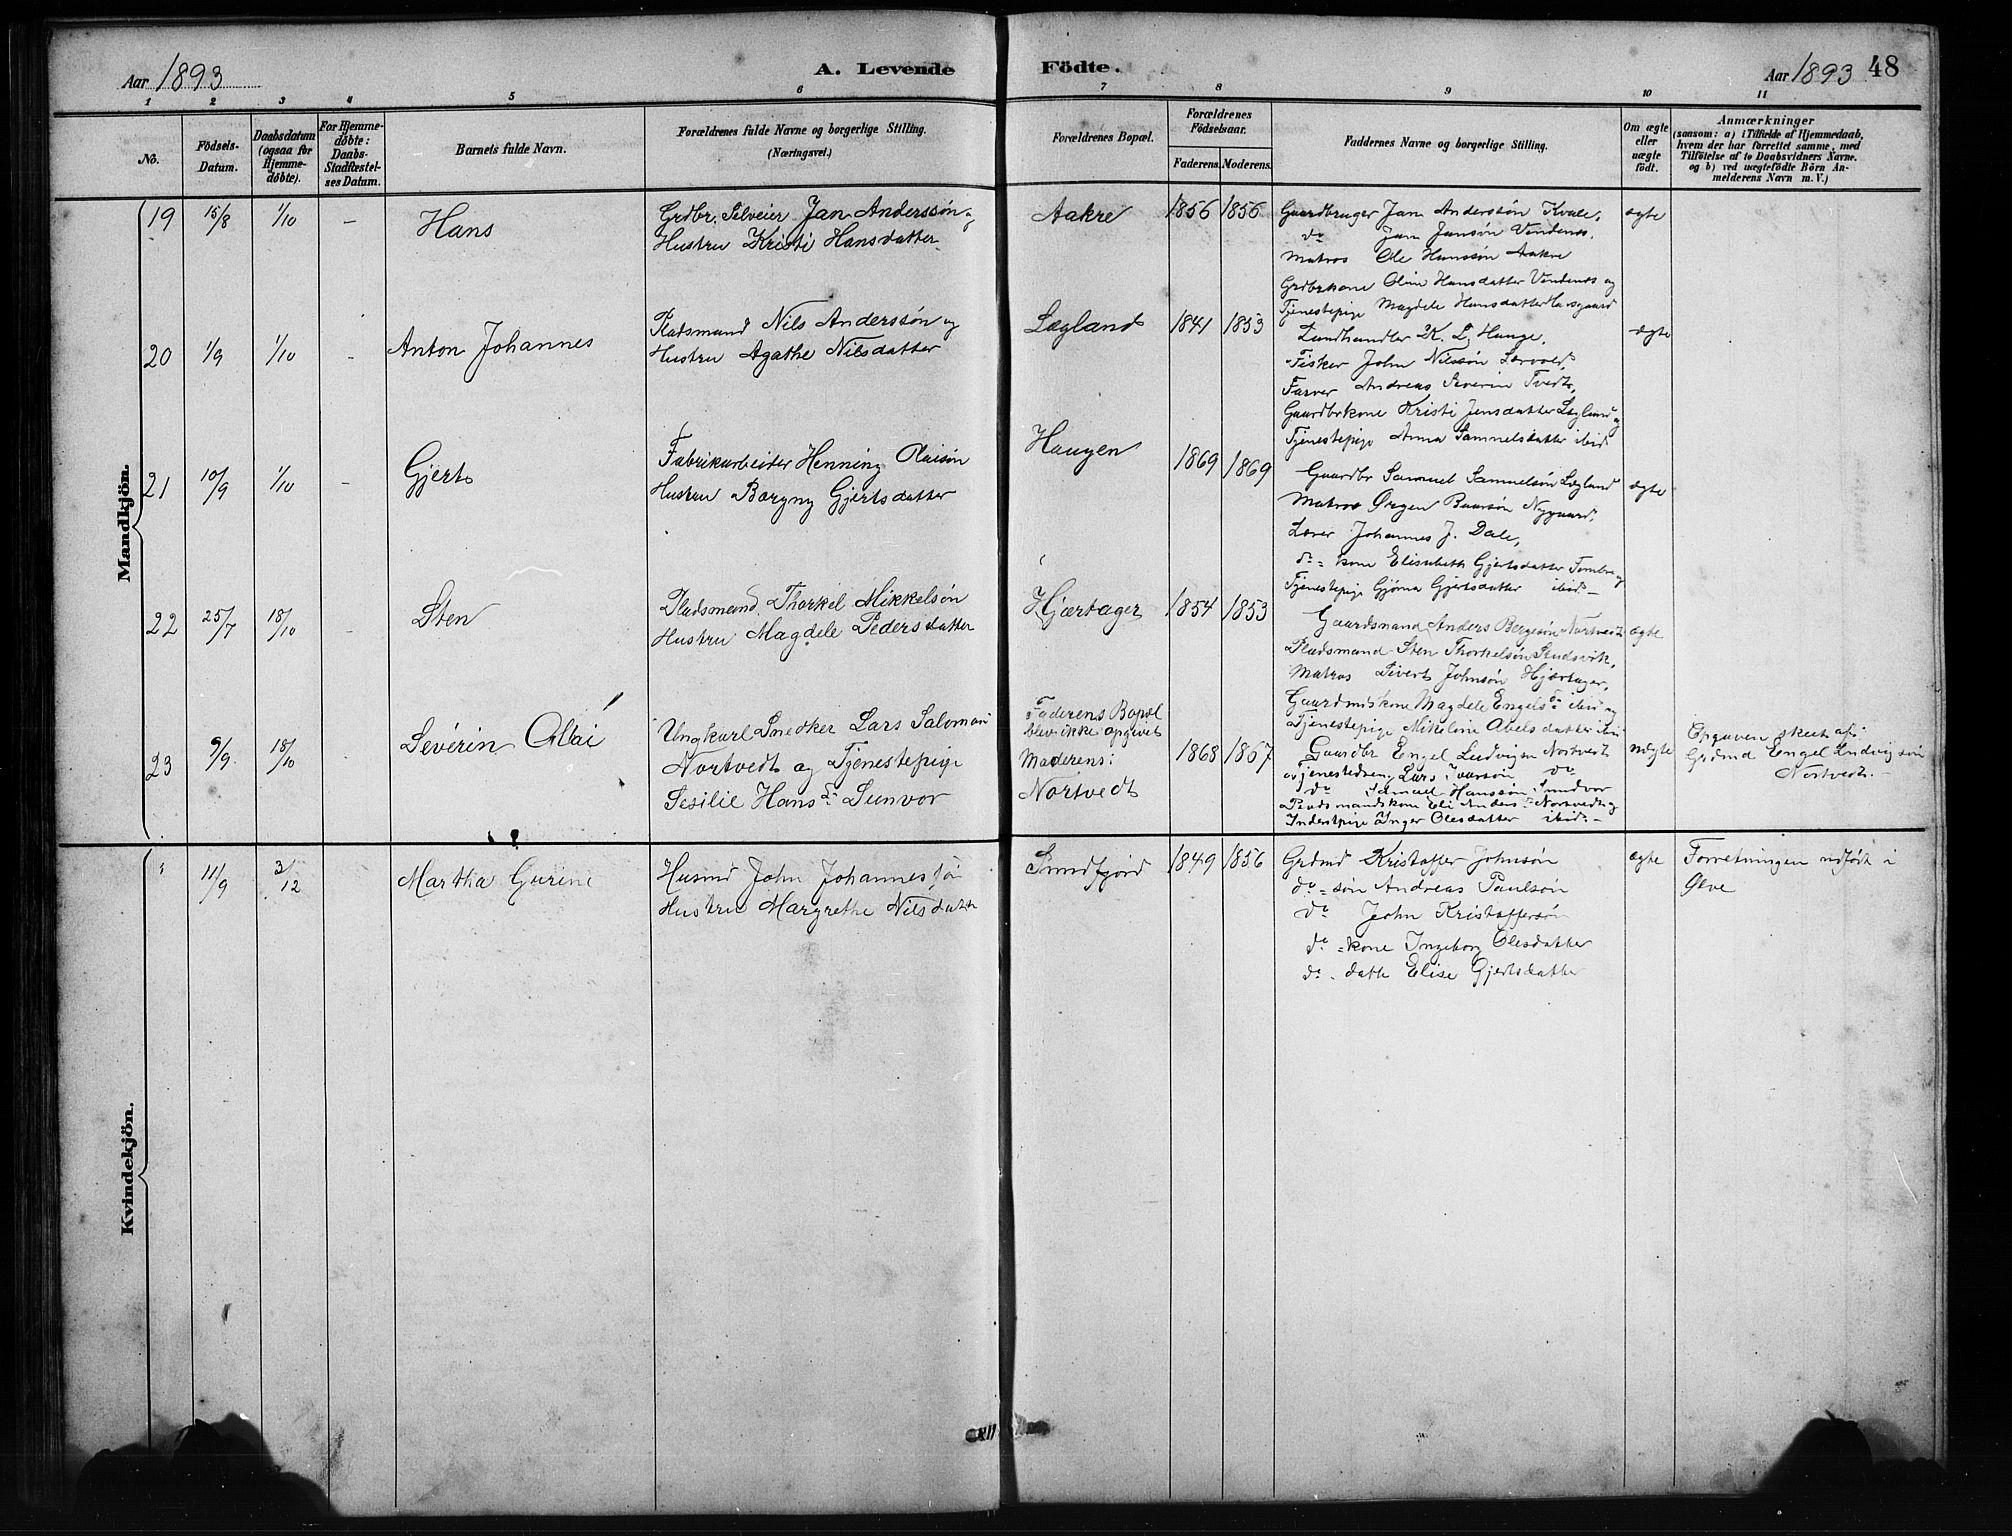 Aar 1893
A. Levende
Födte.
Aar 1893
48
1 2 3 4 5 6 7 8 9 10 11
No.
Födsels-
Datum.
Daabsdatum
(ogsaa for
Hjemme-
döbte).
For Hjemme-
döbte:
Daabs-
Stadfæstel-
ses Datum.
Barnets fulde Navn.
Forældrenes fulde Navne og borgerlige Stilling.
(Næringsvei.)
Forældrenes Bopæl.
Forældrenes
Födselsaar.
Faderens.
Moderens.
Faddernes Navne og borgerlige Stilling.
Om ægte
eller
uægte
födt.
Anmærkninger
(saasom: a) i Tilfælde af Hjemmedaab,
hvem der har forrettet samme, med
Tilföielse af to Daabsvidners Navne.
og b) ved uægtefödte Börn An-
melderens Navn m. V.)
Mandkjön.
19
15/8
1/10
-
Hans
Grdbr. Selveier Jan Anderssøn og
Hustru Kristi Hansdatter
Aakre
1856
1856
Gaardbruger Jan Anderssøn Kvale,
do Jan Jansøn Vindenes,
Matros Ole Hanssøn Aakre
Grdbrkone Oline Hansdatter Vindenes og
Tjenestepige Magdele Hansdatter
ægte
20
1/9
1/10
-
Anton Johannes
Pladsmand Nils Anderssøn og
Hustru Agathe Nilsdatter
Lægland
1841
1853
Landhandler K. L. Hauge,
Fisker John Nilssøn
Farver Andreas Severin Tvedt,
Gaardbrkone Kristi Jensdatter Lægland og
Tjenestepige Anna Samuelsdatter ibid
ægte
21
10/9
1/10
-
Gjert
Fabrikarbeider Henning Olaisøn
Hustru Borgny Gjertsdatter
Haugen
1869
1869
Gaardbr Samuel Samuelsøn Lægland
Matros Ørgen Baarsøn Nygaard,
Lærer Johannes J. Dale,
do = kone Elisabeth Gjertsdatter
Tjenestepige Gjøma Gjertsdatter ibid -
ægte
22
25/7
18/10
-
Sten
Pladsmand Thorkel Mikkelsøn
Hustru Magdele Pedersdatter
Hjærtager
1854
1853
Gaardsmand Anders Bergesøn Nortvedt
Pladsmand Sten Thorkelsøn Sundsvik,
Matros Sivert Johnsøn Hjærtager,
Gaardmskone Magdele Engelsd. ibid og
Tjenestepige Nikoline Abelsdatter ibid
ægte
23
9/9
18/10
Severin Olai
Ungkarl Snedker Lars Salomon
Nortvedt og Tjenestepige
Sesilie Hansd. Sunvor
Faderens Bopæl
blev ikke opgivet
Moderens:
Nortvedt
1868
1867
Gaardbr Engel Ludvigsen Nortvedt
Tjenestedreng Lars Ivarsøn do
do Samuel Hanssøn Sundvor
Pladsmandskone Eli Andersd. Nortvedt og
Inderstpige Inger Olesdatter ibid. -
uægte
Opgaven skeet af:
Grdmd Engel Ludvigsøn
Nortvedt. -
Kvindekjön.
11/9
3/12
Martha Gurine
Husmd John Johannessøn
Hustru Margrethe Nilsdatt
Sundfjord
1849
1856
Grdmd Kristoffer Johnsøn
do = søn Andreas Paulsøn
do John Kristoffersøn
do = kone Ingeborg Olesdatter
do - datt Elise Gjertsdatter
ægte
Forretningen udført i
Ølve